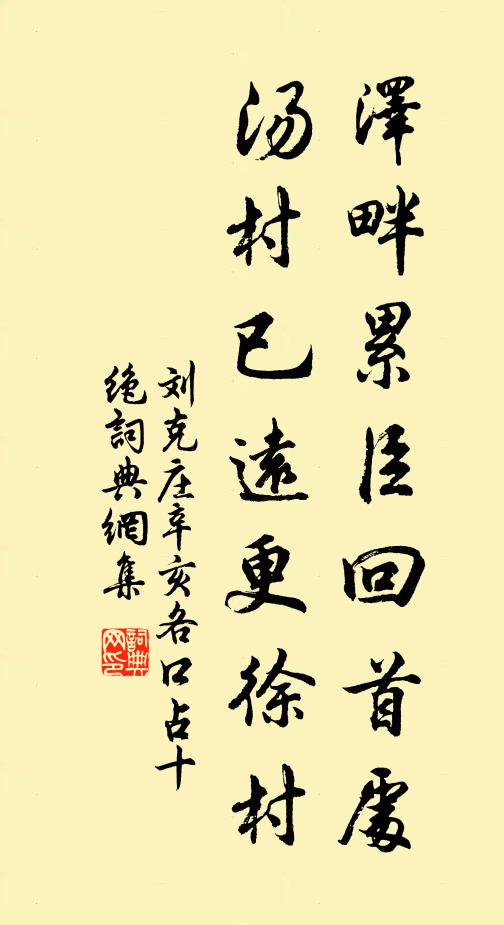 澤畔累臣回首處
汤村已遠更徐村
刘克庄辛亥各口占十
绝詞典網集
詞典网印